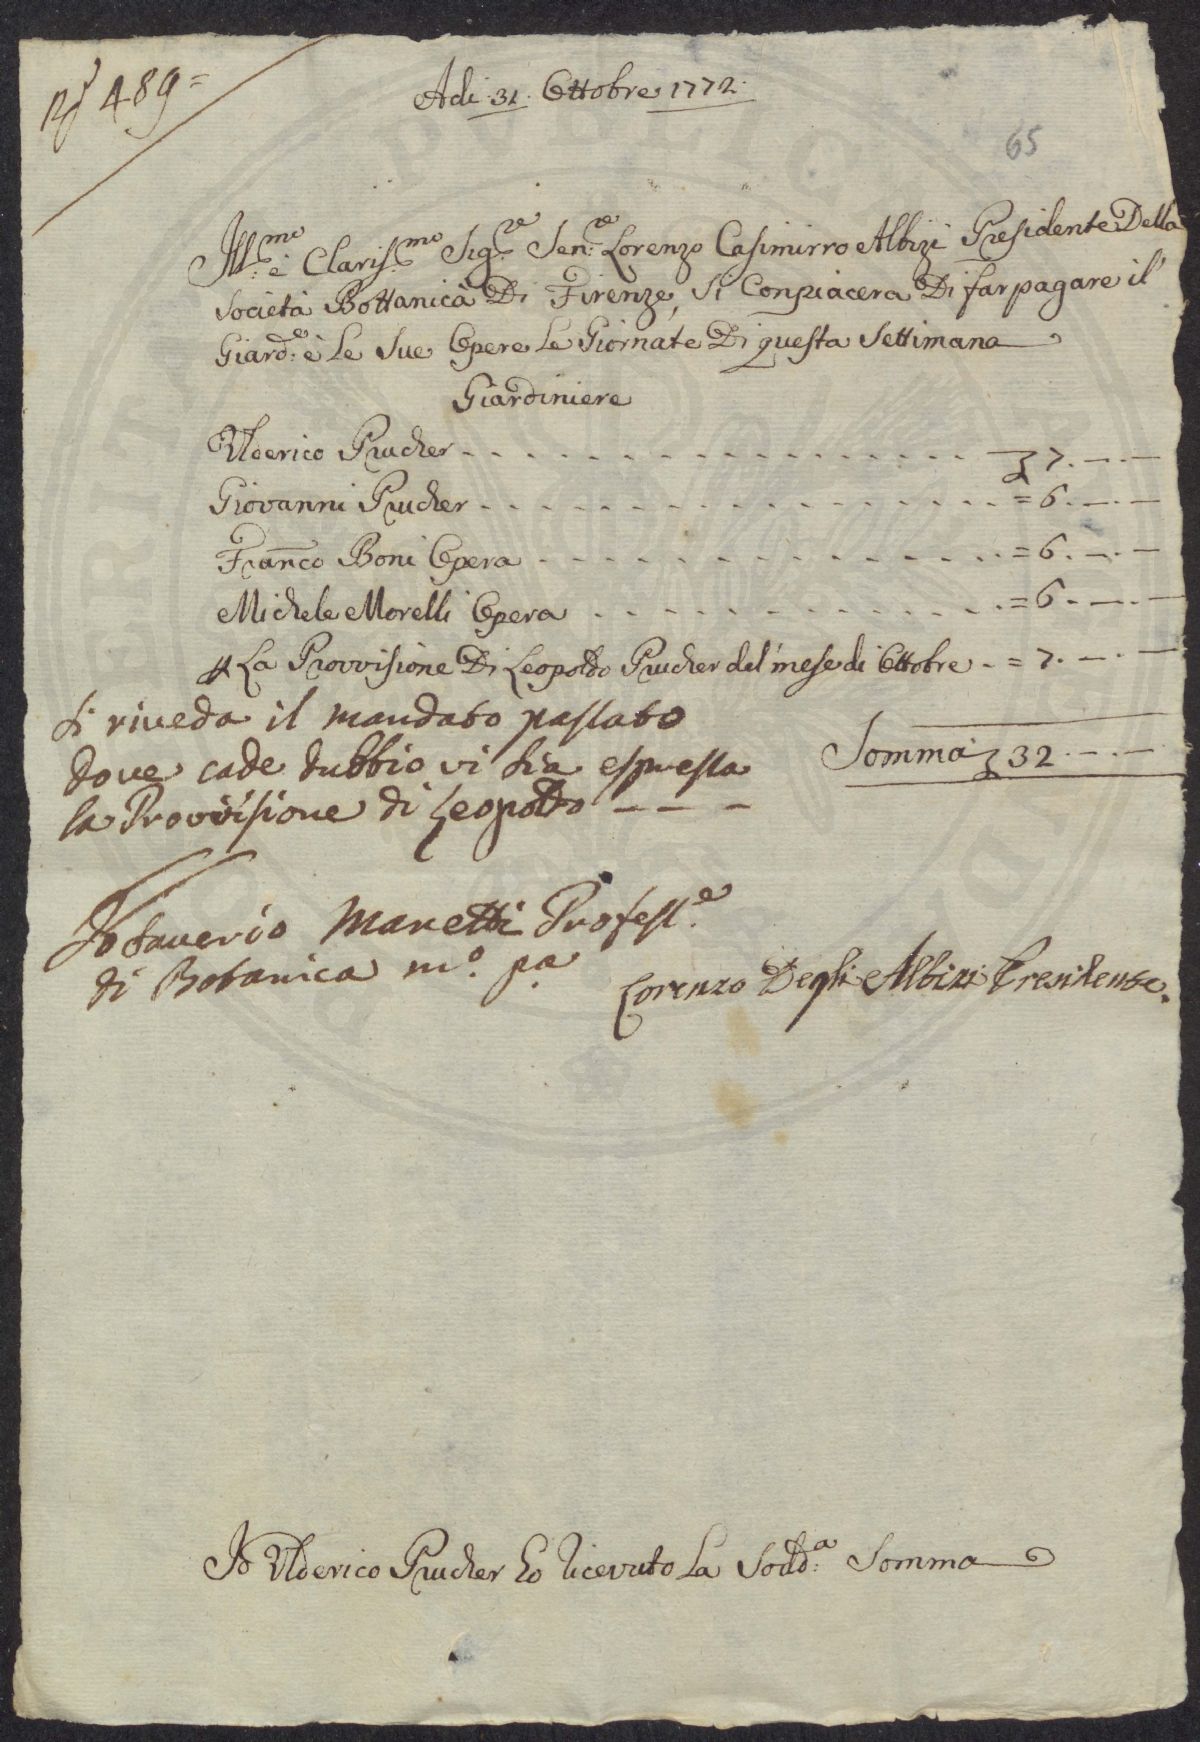 N.° 489=
Adi 31 Ottobre 1772.
65
Ill:mo e Clariss:mo Sig:re Sen:re Lorenzo Casimirro Albizi Presidente Della
Società Bottanica Di Firenze, Si Conpiacera Di far pagare il
Giard:e è Le Sue Opere Le Giornate Di questa Settimana
Giardiniere
Ulderico Prucher - - - - - - - - - - - - - - - - 7. — . —
Giovanni Prucher - - - - - - - - - - - - - - - - = 6. — . —
Franco Boni Opera - - - - - - - - - - - - - - = 6. — . —
Michele Morelli Opera - - - - - - - - - - - - = 6. — . —
La Provvisione Di Leopoldo Prucher del mese di Ottobre - = 7. — . —
Somma 32. — . —
si riveda il mandato passato
dove cade dubbio vi sia espressa
la Provvisione di Leopoldo — — —
Io Saverio Manetti Profess:e
di Botanica m.o pa
Lorenzo Degli Albizi Presidente.
Io Ulderico Prucher ho ricevuto La Sodd:a Somma